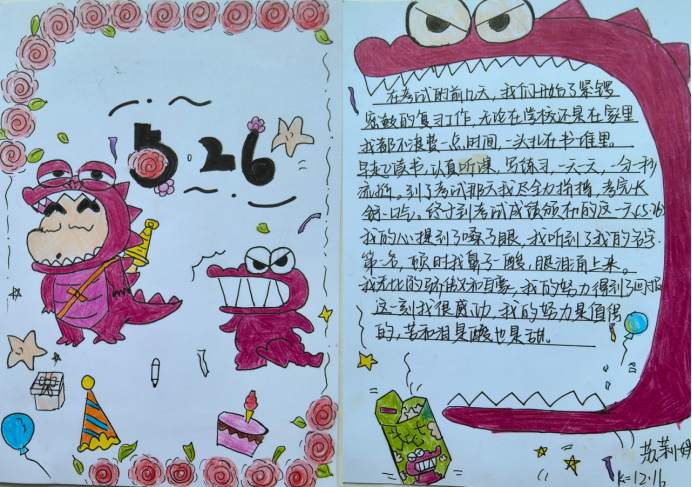 5·26
在考试的前几天,我们开始了紧锣
密鼓的复习工作,无论在学校还是在家里
我都不浪费一点时间,一头扎在书堆里。
早起读书,认真听课,写练习,一天一天,一分一秒
流逝。到了考试那天我尽全力拼搏,考完长
舒一口气。终于到考试成绩颁布的这一天(5·26)
我的心提到了嗓子眼,我听到了我的名字.
第一名,顿时我鼻子一酸,眼泪涌上来。
我的努力得到了回报
这一刻我很感动,我的努力是值得
的,苦和泪是酸也是甜。
K=12·16